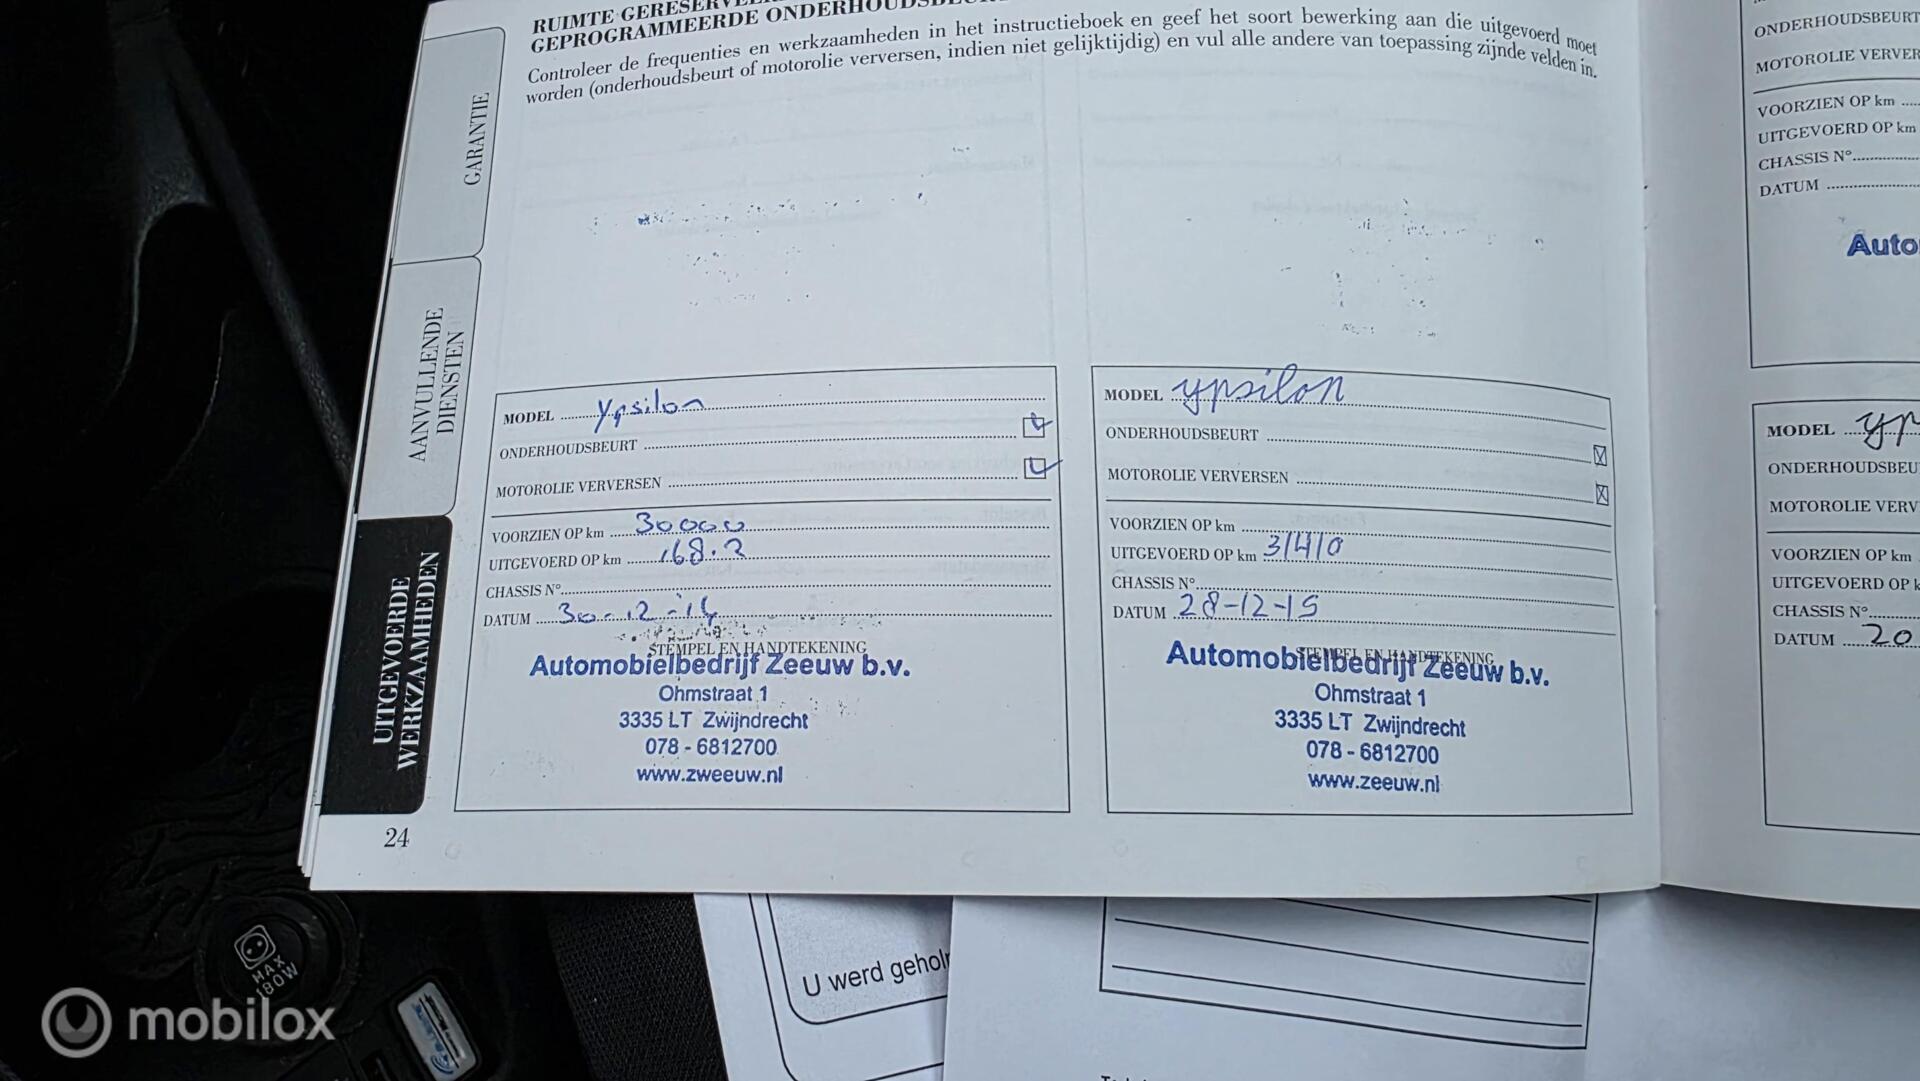 RUIMTE
GEPROGRAMMEERDE
Controleer de frequenties en werkzaamheden in het instructieboek en geef het soort bewerking aan die uitgevoerd moet
worden (onderhoudsbeurt of motorolie verversen, indien niet gelijktijdig) en vul alle andere van toepassing zijnde velden in.
GARANTIE
AANVULLENDE
DIENSTEN
UITGEVOERDE
WERKZAAMHEDEN
MODEL Ypsilon
ONDERHOUDSBEURT
MOTOROLIE VERVERSEN
VOORZIEN OP km 30000
UITGEVOERD OP km
CHASSIS N°
DATUM 30-12-14
STEMPEL EN HANDTEKENING
Automobielbedrijf Zeeuw b.v.
Ohmstraat 1
3335 LT Zwijndrecht
078 - 6812700
www.zweeuw.nl
24
MODEL ypsilon
ONDERHOUDSBEURT
MOTOROLIE VERVERSEN
VOORZIEN OP km
UITGEVOERD OP km 31410
CHASSIS N°
DATUM 28-12-15
STEMPEL EN HANDTEKENING
Automobielbedrijf Zeeuw b.v.
Ohmstraat 1
3335 LT Zwijndrecht
078 - 6812700
www.zeeuw.nl
ONDERHOUDSBEURT
MOTOROLIE
VOORZIEN OP km
UITGEVOERD OP km
CHASSIS N°
DATUM
Auto
MODEL
MOTOROLIE
VOORZIEN OP km
UITGEVOERD OP
CHASSIS N°
DATUM 20
U werd
MAX
180W
mobilox